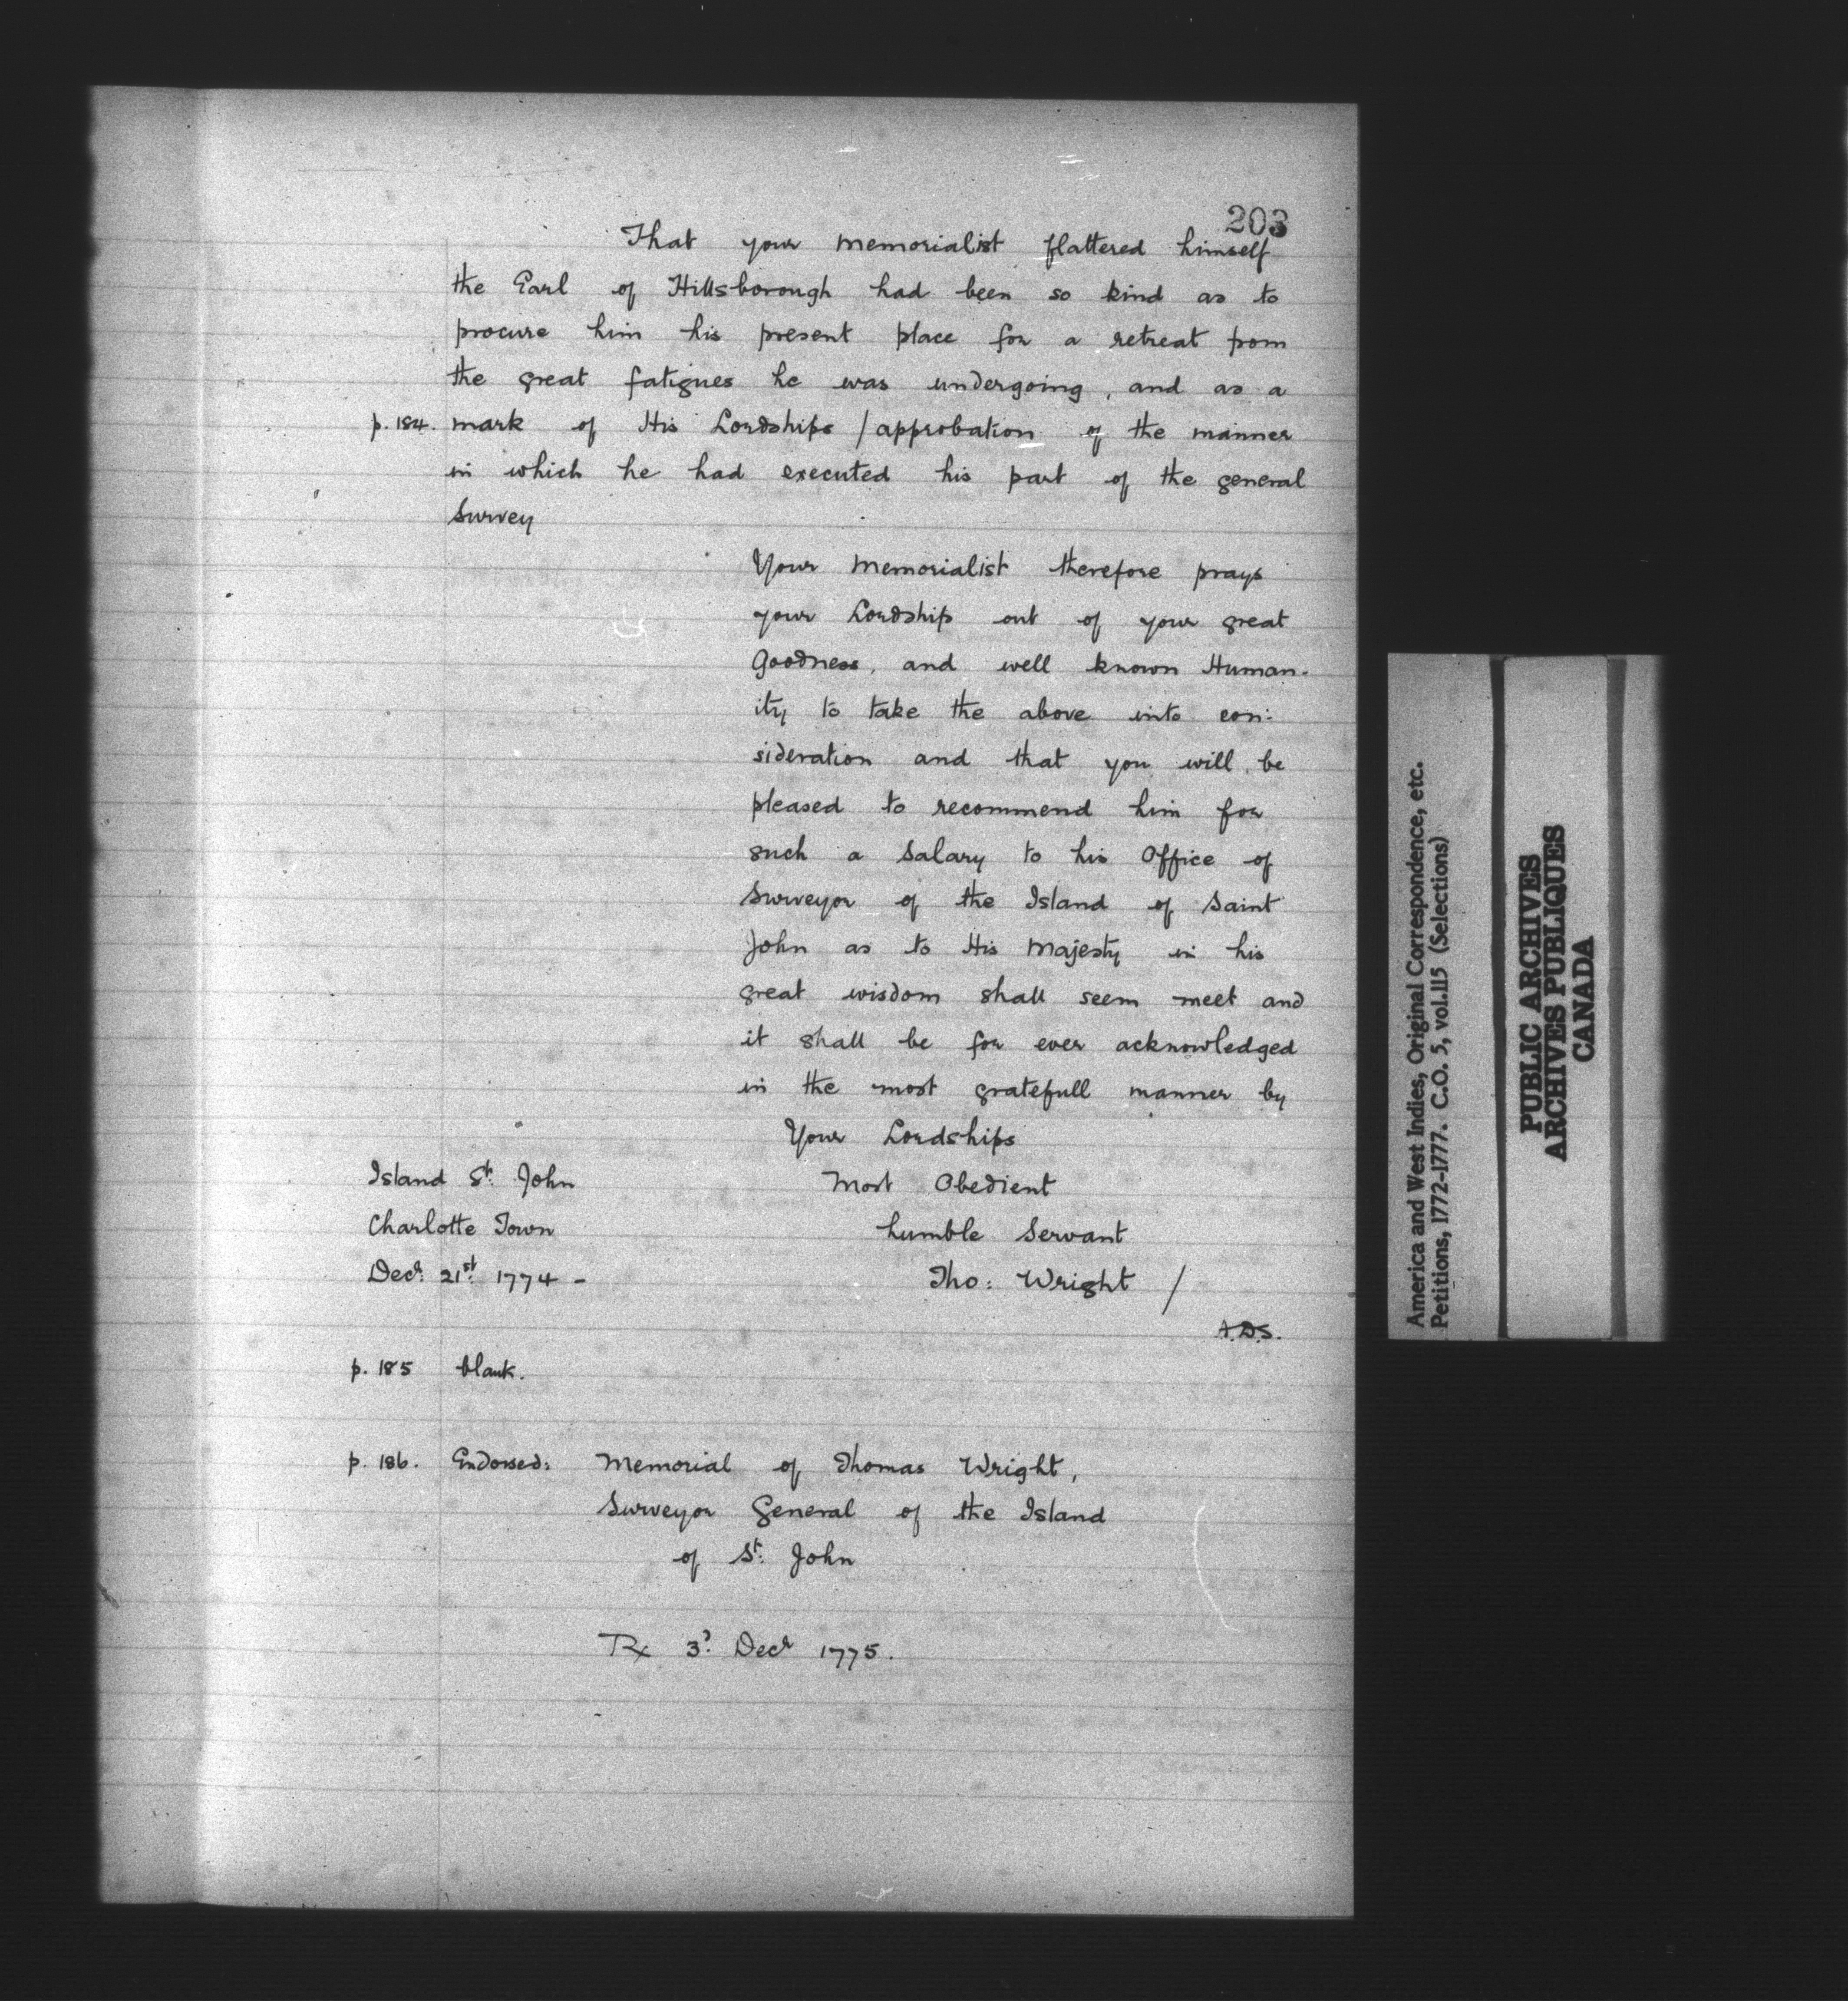 203
That your memorialist flattered himself
the Earl of Hillsborough had been so kind as to
procure him his present place for a retreat from
the great fatigues he was undergoing, and as a
p. 184. mark of His Lordships / approbation of the manner
in which he had executed his part of the general
Survey
Your Memorialist therefore prays
your Lordship out of your great
Goodness, and well known Human-
ity to take the above into con:
sideration and that you will be
pleased to recommend him for
such a Salary to his Office of
Surveyor of the Island of Saint
John as to His Majesty in his
great wisdom shall seem meet and
it shall be for ever acknowledged
in the most gratefull manner by
Your Lordships
Island St. John Most Obedient
Charlotte Town humble Servant
Decr. 21st. 1774 - Tho: Wright /
A.D.S.
p. 185 blank.
p. 186. Endorsed: Memorial of Thomas Wright,
Surveyor General of the Island
of St. John
Rx 3d. Decr 1775.
America and West Indies, Original Correspondence, etc.
Petitions, 1772-1777. C.O. 5, vol.115 (Selections)
PUBLIC ARCHIVES
ARCHIVES PUBLIQUES
CANADA